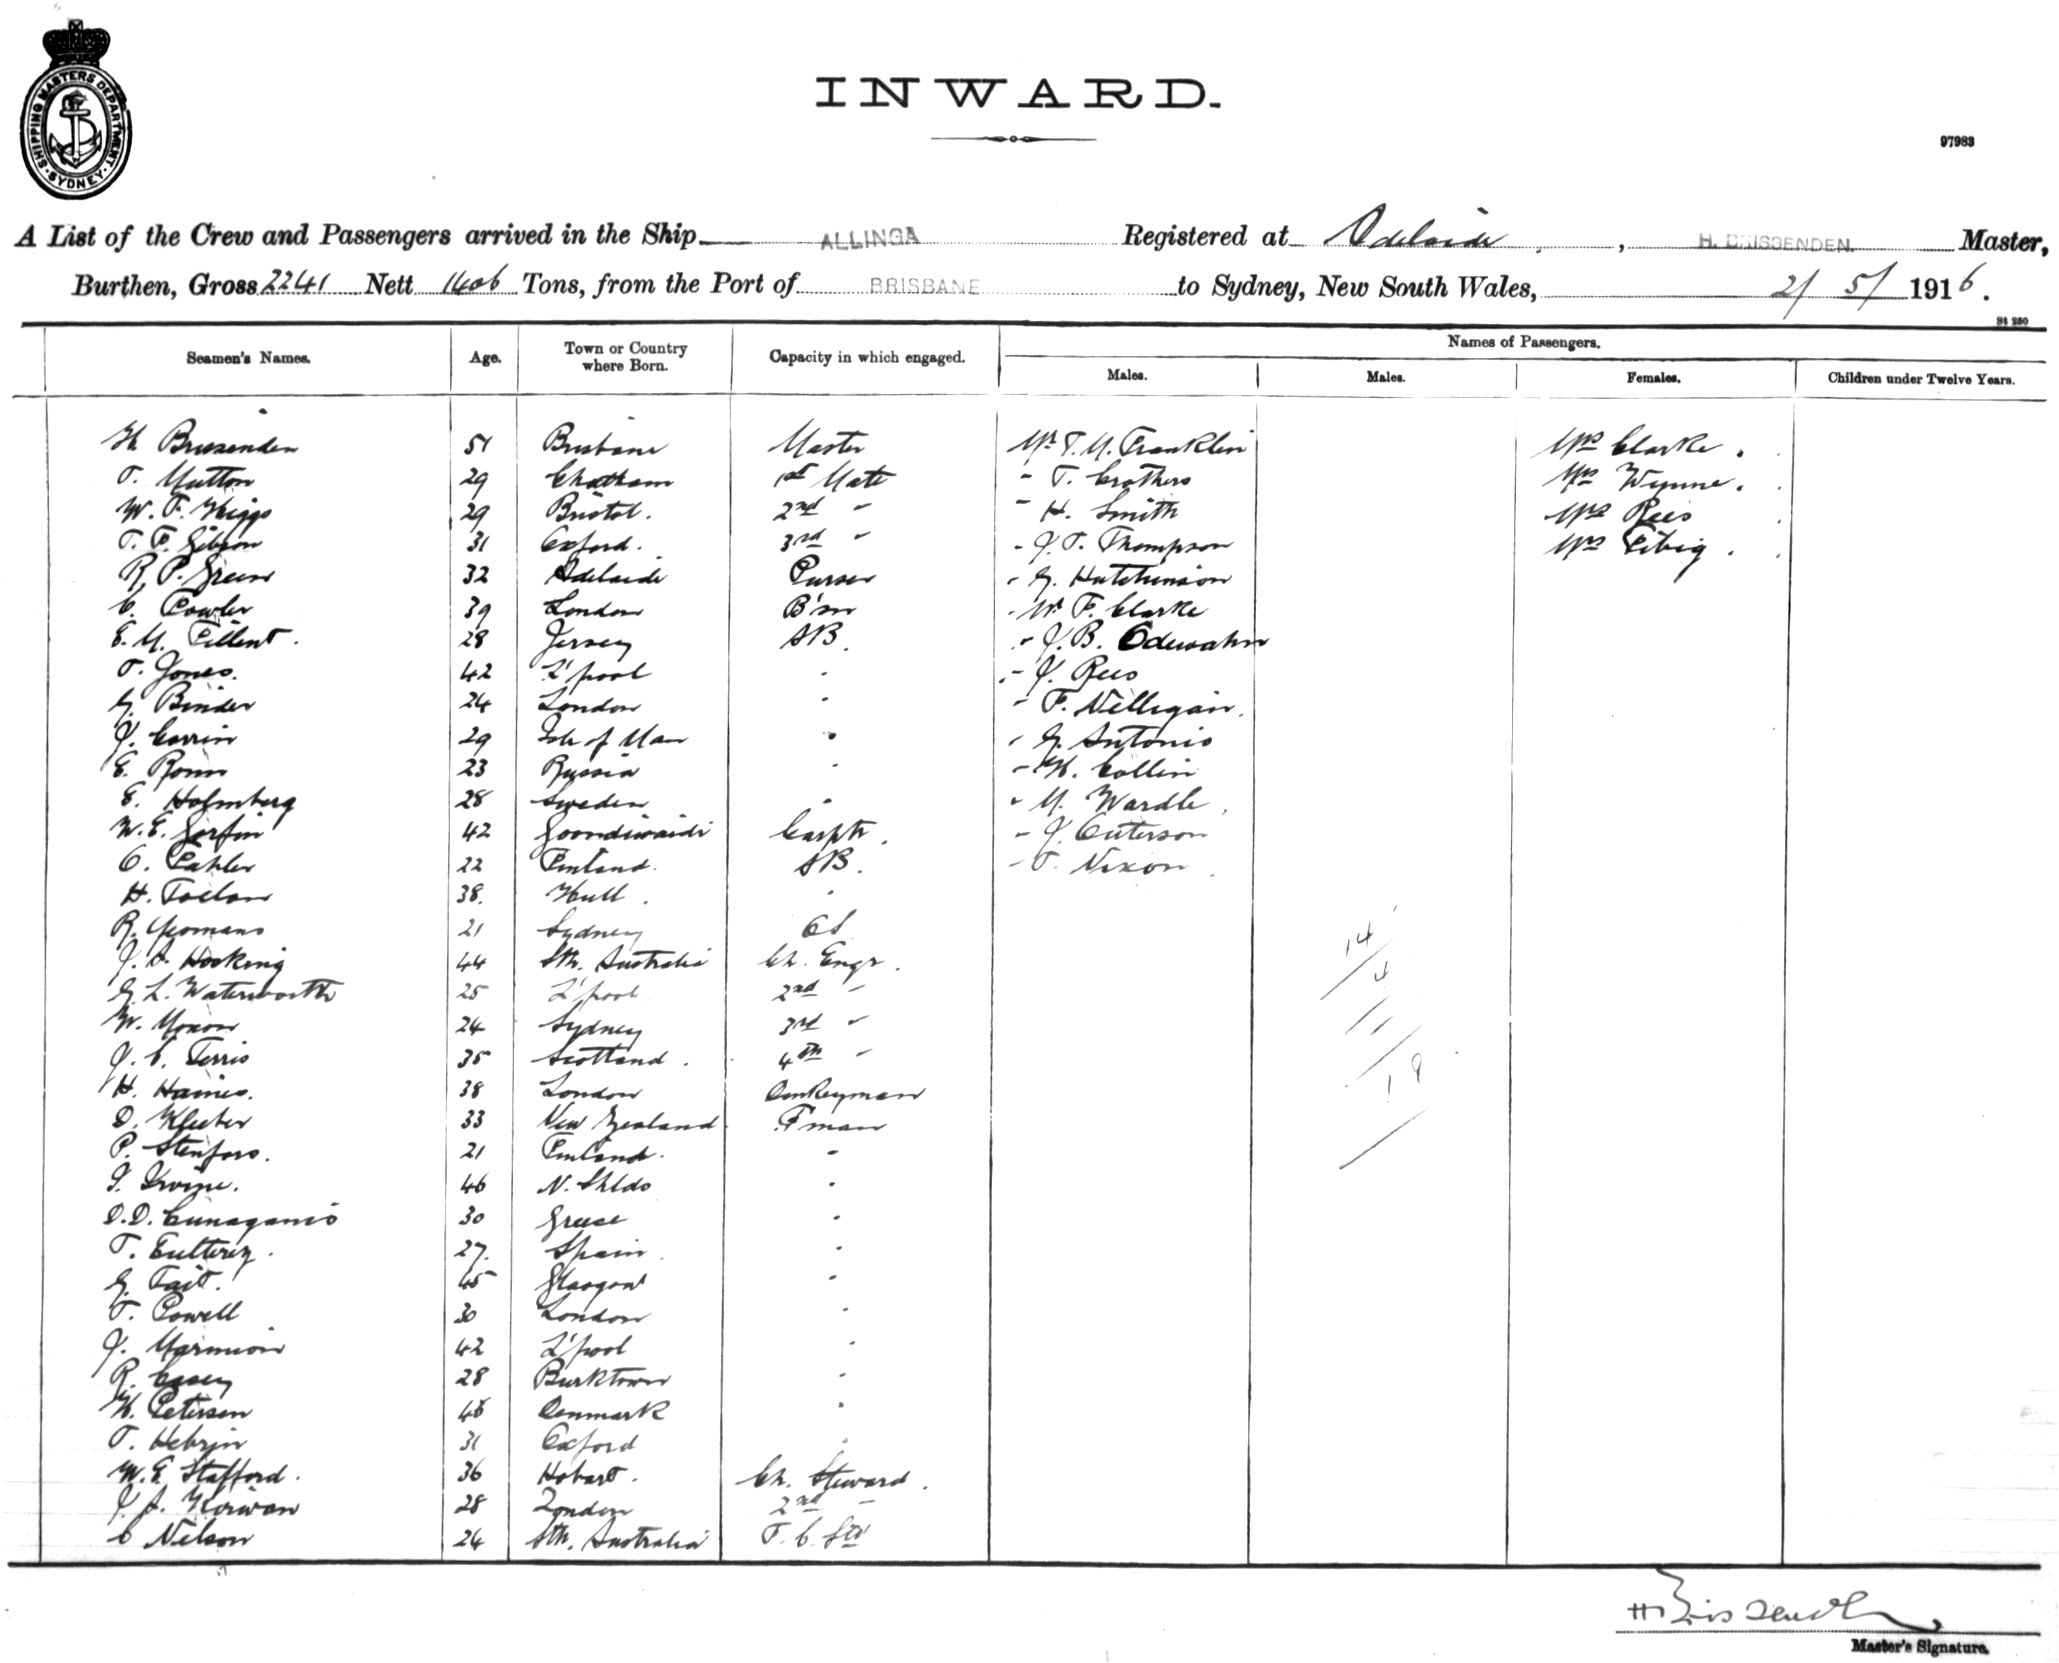 SHIPPING MASTERS DEPARTMENT · SYDNEY ·
INWARD.
97983
A List of the Crew and Passengers arrived in the Ship ALLINGA Registered at Adelaide, H. BRISSENDEN. Master,
Burthen, Gross 2241 Nett 1406 Tons, from the Port of BRISBANE to Sydney, New South Wales, 2/5/1916.
St 250
Names of Passengers.
Seamen's Names. Age. Town or Country where Born. Capacity in which engaged. Males. Males. Females. Children under Twelve Years.
H Brissenden 51 Brisbane Master Mr T. M. Franklin Mrs Clarke.
T. Mutton 29 Chatham 1st Mate - T. Crothers Mrs Wynne.
W. F. Higgs 29 Bristol. 2nd " - H. Smith Mrs Rees
T. F. Gibson 31 Oxford. 3rd " - J. T. Thompson Mrs Fibig.
R. P. Green 32 Adelaide Purser - G. Hutchinson
C. Fowler 39 London B'sn - W. F. Clarke
E. M. Fillent. 28 Jersey AB. - J. B. Odewahn
T. Jones. 42 L'pool " - J. Rees
G. Binder 24 London " - F. Nelligan.
J. Corrin 29 Isle of Man " - G. Antonis
E. Ronn 23 Russia " - H. Collin
E. Holmberg 28 Sweden " - M. Wardle.
W. E. Gorfin 42 Goondiwindi Carptr. - J. Outerson
O. Pahler 22 Finland. AB. - T. Nixon
H. 38. Hull. "
R. Yeomans 21 Sydney OS
J. A. Hocking 44 Sth. Australia Ch. Engr.
G. L. Waterworth 25 L'pool 2nd "
W. Moxon 24 Sydney 3rd "
J. C. Ferris 35 Scotland. 4th "
H. Haines. 38 London Donkeyman
D. 33 New Zealand F'man
P. Stenfors. 21 Finland. "
J. Irvine. 46 N. Shlds "
D. D. 30 Greece "
T. 27. Spain "
G. Tait. 45 Glasgow "
T. Powell 30 London "
J. Marmion 42 L'pool "
R. Casey 28 Burktown "
H. Petersen 46 Denmark "
T. Hebrin 31 Oxford "
W. E. Stafford. 36 Hobart. Ch. Steward.
J. J. Kirwan 28 London 2nd "
C Nelson 24 Sth. Australia F. C. Std
14
4
18
H Brissenden
Master's Signature.